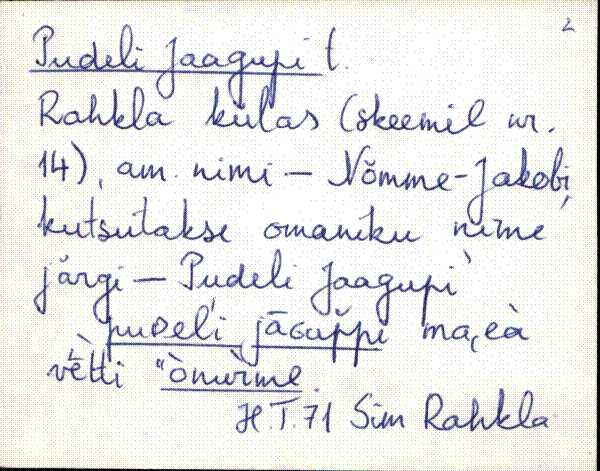 2
Pudeli Jaagupi t.
Rahkla külas (skeemil nr.
14), am. nimi – Nõmme-Jakobi,
kutsutakse omaniku nime
järgi – Pudeli Jaagupi
puᴅeli jāɢuppi
vètti
H.T.71 Sim Rahkla